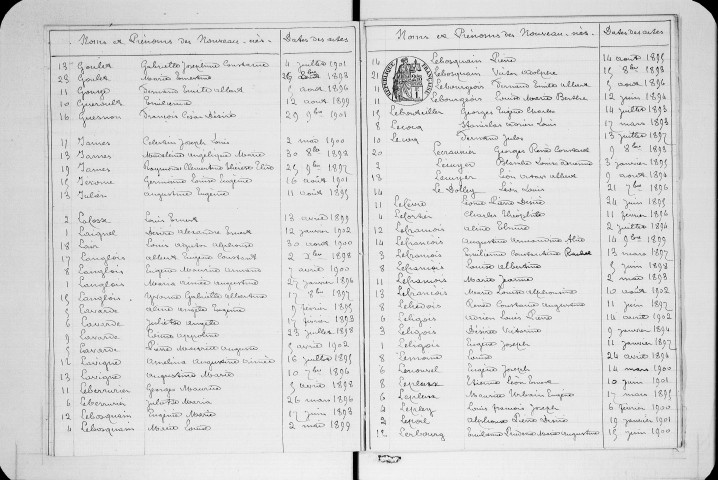 Noms et Prénoms des Nouveau-nés Dates des actes
13 Goulet Gabrielle Joséphine Constance 4 juillet 1901
23 Goulet Maria Ernestine 1898
11 Gouze Fernand Emile Albert 5 août 1896
10 Gueroult Emilienne 12 août 1899
16 Guesnon François César Désiré 29 9bre 1901
17 James Célestin Joseph Louis 2 mai 1900
11 James Madeleine Angélique Marie 30 8bre 1898
19 James Raymond Clémentine Thérèse 25 9bre 1897
15 Jérôme Germaine Louise Eugénie 16 août 1901
13 Julien Augustine Eugénie 11 août 1895
2 Louis Ernest 13 avril 1899
1 Laignel Désiré Alexandre Ernest 12 janvier 1902
18 Louis Auguste Alphonse 30 août 1900
17 Langlois Albert Eugène Constant 2 Xbre 1898
8 Langlois Eugène Maurice Armand 7 avril 1900
1 Langlois Maria Aimée Augustine 27 janvier 1896
15 Langlois Gabrielle Albertine 17 8bre 1897
5 Lavarde Aline Angèle Eugénie 9 février 1895
6 Lavarde Juliette Angèle 17 février 1893
9 Lavarde Louise 23 juillet 1898
9 Lavarde Pierre Maurice Auguste 5 avril 1902
12 Lavigne Amélina Augustine Aimée 16 juillet 1895
13 Lavigne Augustine Maria 10 7bre 1896
11 Leberrurier Georges Maurice 5 avril 1898
6 Leberrurier Juliette Maria 26 mars 1896
12 Lebosquain Eugène Marie 17 juin 1893
4 Lebosquain Maria Louise 2 mai 1899
Noms et Prénoms des Nouveau-nés Dates des actes
RÉPUBLIQUE FRANÇAISE
14 Lebosquain Pierre 14 août 1895
21 Lebosquain Victor Adolphe 15 8bre 1893
11 Lebourgeois Fernand Emile Albert 5 août 1896
11 Lebourgeois Louise Maria Berthe 12 juin 1894
15 Lebouteiller Georges Eugène Charles 14 juillet 1893
8 Lecocq Stanislas Adrien Louis 17 mars 1893
10 Fernand Jules 13 juillet 1897
20 Georges Pierre Constant 9 8bre 1893
1 Blanche Louise 3 janvier 1895
18 Léon Victor Albert 9 août 1894
14 Léon Louis 21 7bre 1896
11 Lefèvre Léonie Désirée 24 juin 1895
4 Charles Théophile 11 février 1896
12 Lefrançois Aline Elmire 2 juillet 1894
14 Lefrançois Augustine Armandine 14 9bre 1899
3 Lefrançois Emilienne Constantine Rachel 13 mars 1897
8 Lefrançois Louise Albertine 8 juin 1898
11 Lefrançois Maria Jeanne 2 mai 1893
13 Lefrançois Maria Louise Alphonsine 10 août 1902
8 René Constant Auguste 11 juin 1897
4 Leligois Adrien Louis Pierre 14 août 1902
3 Leligois Désiré Victorine 9 janvier 1894
1 Leligois Eugène Joseph 11 janvier 1897
8 Lemoine Louis 24 avril 1894
6 Eugène Joseph 14 mars 1900
8 Etienne Léon Ernest 10 juin 1901
6 Maurice Urbain Eugène 17 mars 1895
4 Louis François Joseph 6 février 1900
2 Alphonse Pierre Désiré 19 janvier 1901
12 Lerbourg Maria Augustine 15 juin 1900